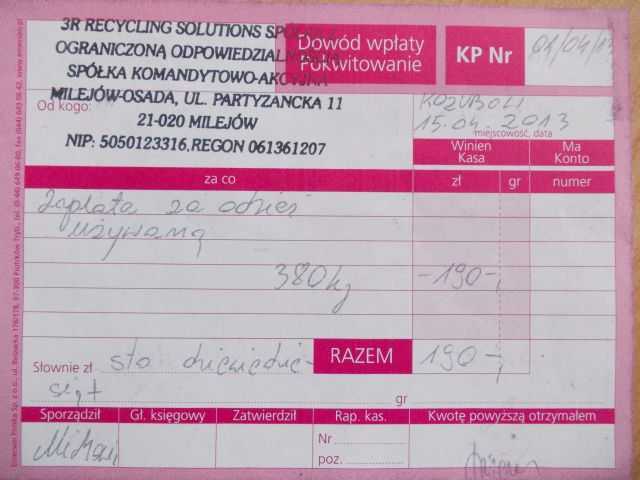 3R RECYCLING SOLUTIONS
OGRANICZONĄ ODPOWIEDZIALNOŚCIĄ
SPÓŁKA KOMANDYTOWO-AKCYJNA
MILEJÓW-OSADA, UL. PARTYZANCKA 11
21-020 MILEJÓW
NIP: 5050123316,REGON 061361207
Dowód wpłaty
Pokwitowanie
KP Nr 01/04/13
Od kogo:
15.04.2013
miejscowość, data
Winien Kasa
Ma Konto
za co
zł gr numer
Zapłata za odzież
używaną
380 kg -190-,
Słownie zł sto dziewięć-
RAZEM 190-,
gr
Sporządził Gł. księgowy Zatwierdził Rap. kas. Kwotę powyższą otrzymałem
Nr
poz.
www.emerson.pl